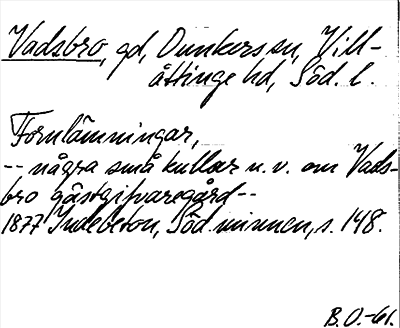 Vadsbro, gd, Dunkers sn, Vill-
åttinge hd, Söd. l.
Fornlämningar,
-- några små kullar n. v. om Vads-
bro gästgifvaregård--
1877 Indebetou, Söd. minnen, s. 148.
B.O.-61.